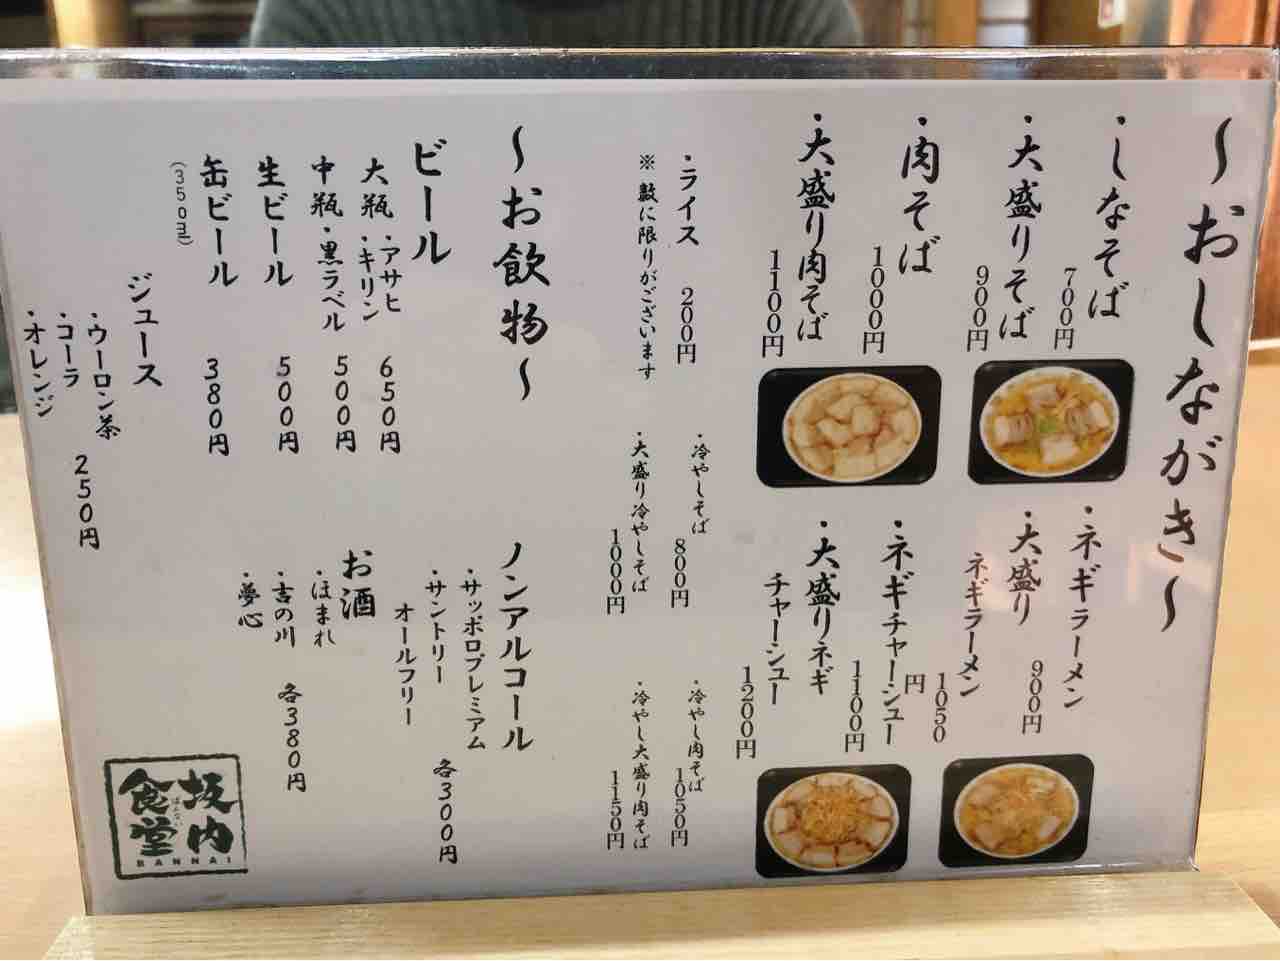 ～おしながき～
・しなそば
700円
・大盛りそば
900円
・肉そば
1000円
・大盛り肉そば
1100円
・ネギラーメン
900円
・大盛り
ネギラーメン
1050円
・ネギチャーシュー
1100円
・大盛りネギ
チャーシュー
1200円
・ライス 200円
※ 数に限りがございます
・冷やしそば
800円
・大盛り冷やしそば
1000円
・冷やし肉そば
1050円
・冷やし大盛り肉そば
1150円
～お飲物～
ビール
大瓶・アサヒ
・キリン 650円
中瓶・黒ラベル 500円
生ビール 500円
缶ビール 380円
(350ml)
ジュース
・ウーロン茶
・コーラ
・オレンジ
250円
ノンアルコール
・サッポロプレミアム
・サントリー
オールフリー
各300円
お酒
・ほまれ
・吉の川
・夢心
各380円
坂内
ばんない
食堂
BANNAI